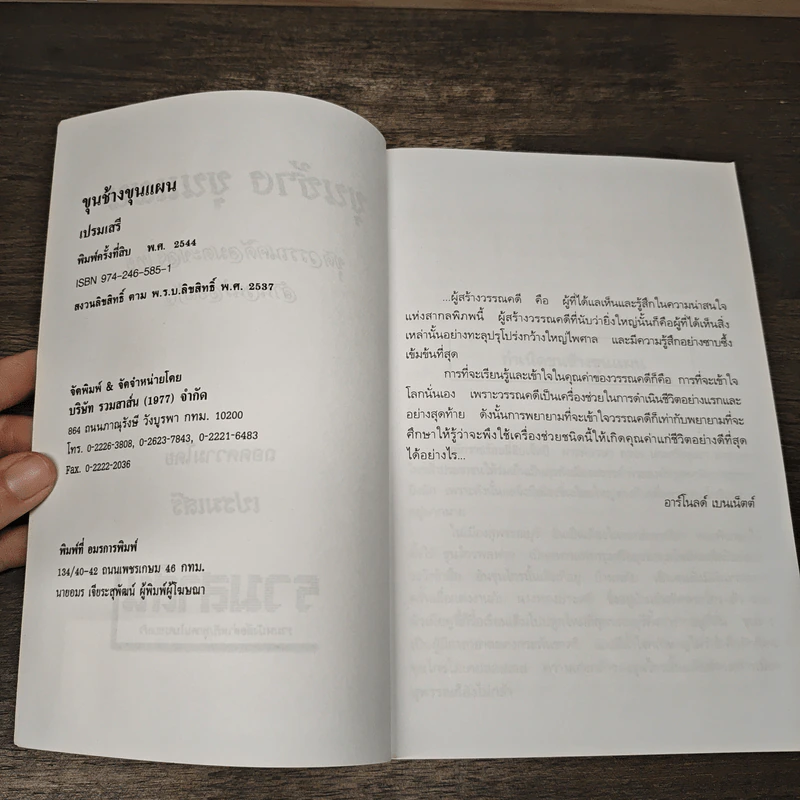 ขุนช้างขุนแผน
เปรมเสรี
พิมพ์ครั้งที่สิบ พ.ศ. 2544
ISBN 974-246-585-1
สงวนลิขสิทธิ์ ตาม พ.ร.บ.ลิขสิทธิ์ พ.ศ. 2537
จัดพิมพ์ & จัดจำหน่ายโดย
บริษัท รวมสาส์น (1977) จำกัด
864 ถนนภาณุรังษี วังบูรพา กทม. 10200
โทร. 0-2226-3808, 0-2623-7843, 0-2221-6483
Fax. 0-2222-2036
พิมพ์ที่ อมรการพิมพ์
134/40-42 ถนนเพชรเกษม 46 กทม.
นายอมร เจียระสุพัฒน์ ผู้พิมพ์ผู้โฆษณา
...ผู้สร้างวรรณคดี คือ ผู้ที่ได้แลเห็นและรู้สึกในความน่าสนใจ
แห่งสากลพิภพนี้ ผู้สร้างวรรณคดีที่นับว่ายิ่งใหญ่นั้นก็คือผู้ที่ได้เห็นสิ่ง
เหล่านั้นอย่างทะลุปรุโปร่งกว้างใหญ่ไพศาล และมีความรู้สึกอย่างซาบซึ้ง
เข้มข้นที่สุด
การที่จะเรียนรู้และเข้าใจในคุณค่าของวรรณคดีก็คือ การที่จะเข้าใจ
โลกนั่นเอง เพราะวรรณคดีเป็นเครื่องช่วยในการดำเนินชีวิตอย่างแรกและ
อย่างสุดท้าย ดังนั้นการพยายามที่จะเข้าใจวรรณคดีก็เท่ากับพยายามที่จะ
ศึกษาให้รู้ว่าจะพึงใช้เครื่องช่วยชนิดนี้ให้เกิดคุณค่าแก่ชีวิตอย่างดีที่สุด
ได้อย่างไร...
อาร์โนลด์ เบนเน็ตต์